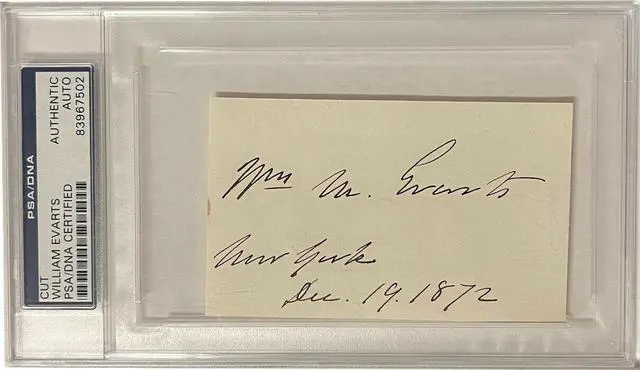 PSA/DNA
CUT
WILLIAM EVARTS
PSA/DNA CERTIFIED
AUTHENTIC
AUTO
83967502
Wm M. Evarts
New York
Dec. 19. 1872